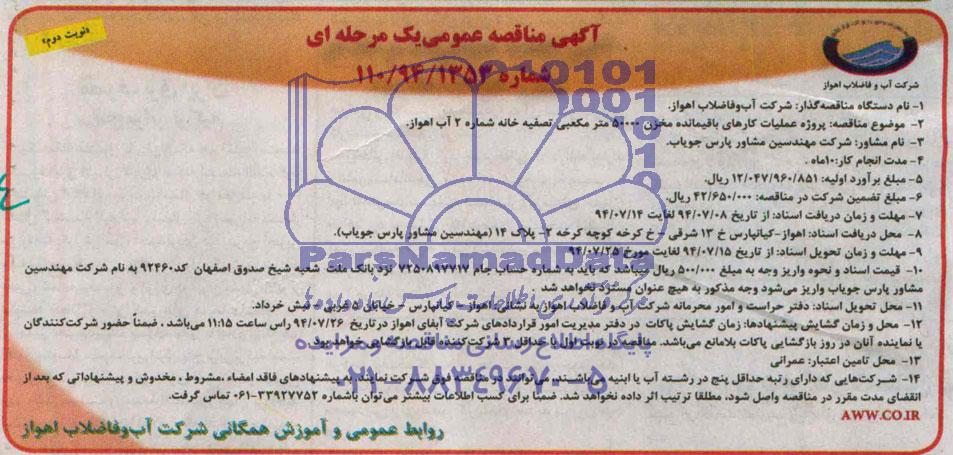 «نوبت دوم»
آگهی مناقصه عمومی یک مرحله ای
شماره ۱۱۰/۹۴/۱۳۵۳
شرکت آب و فاضلاب اهواز
۱- نام دستگاه مناقصه‌گذار: شرکت آب‌وفاضلاب اهواز.
۲- موضوع مناقصه: پروژه عملیات کارهای باقیمانده مخزن ۵۰۰۰۰ متر مکعبی تصفیه خانه شماره ۲ آب اهواز.
۳- نام مشاور: شرکت مهندسین مشاور پارس جویاب.
۴- مدت انجام کار: ۱۰ماه .
۵- مبلغ برآورد اولیه: ۱۲/۰۴۷/۹۶۰/۸۵۱ ریال.
۶- مبلغ تضمین شرکت در مناقصه: ۴۲/۶۵۰/۰۰۰ ریال.
۷- مهلت و زمان دریافت اسناد: از تاریخ ۹۴/۰۷/۰۸ لغایت ۹۴/۰۷/۱۴
۸- محل دریافت اسناد: اهواز-کیانپارس خ ۱۳ شرقی - خ کرخه کوچه کرخه ۲- پلاک ۱۴ (مهندسین مشاور پارس جویاب).
۹- مهلت و زمان تحویل اسناد: از تاریخ ۹۴/۰۷/۱۵ لغایت مورخ ۹۴/۰۷/۲۵
۱۰- قیمت اسناد و نحوه واریز وجه به مبلغ ۵۰۰/۰۰۰ ریال میباشد که باید به شماره حساب جام ۷۲۵۰۸۹۷۷۱۷ نزد بانک ملت شعبه شیخ صدوق اصفهان کد۹۲۴۶۰ به نام شرکت مهندسین
مشاور پارس جویاب واریز می‌شود وجه مذکور به هیچ عنوان مسترد نخواهد شد .
۱۱- محل تحویل اسناد: دفتر حراست و امور محرمانه شرکت آب و فاضلاب اهواز به نشانی: اهواز - کیانپارس - خیابان ۵ غربی - نبش خرداد.
۱۲- محل و زمان گشایش پیشنهادها: زمان گشایش پاکات در دفتر مدیریت امور قراردادهای شرکت آبفای اهواز در تاریخ ۹۴/۰۷/۲۶ راس ساعت ۱۱:۱۵ می‌باشد . ضمناً حضور شرکت‌کنندگان
یا نماینده آنان در روز بازگشایی پاکات بلامانع می‌باشد. مناقصه در نوبت اول با حداقل ۳ شرکت‌کننده قابل بازگشایی خواهد بود.
۱۳- محل تامین اعتبار: عمرانی
۱۴- شرکت‌هایی که دارای رتبه حداقل پنج در رشته آب یا ابنیه می‌باشند، می‌توانند در مناقصه فوق شرکت نمایند. به پیشنهادهای فاقد امضاء ،مشروط ، مخدوش و پیشنهاداتی که بعد از
انقضای مدت مقرر در مناقصه واصل شود، مطلقا ترتیب اثر داده نخواهد شد. ضمنا برای کسب اطلاعات بیشتر می‌توان باشماره ۳۳۹۲۷۷۵۲-۰۶۱ تماس گرفت.
AWW.CO.IR
روابط عمومی و آموزش همگانی شرکت آب‌وفاضلاب اهواز
ParsNamadData
پایگاه اطلاع رسانی مناقصه و مزایده
۰۲۱-۸۸۳۴۹۶۷۰-۵